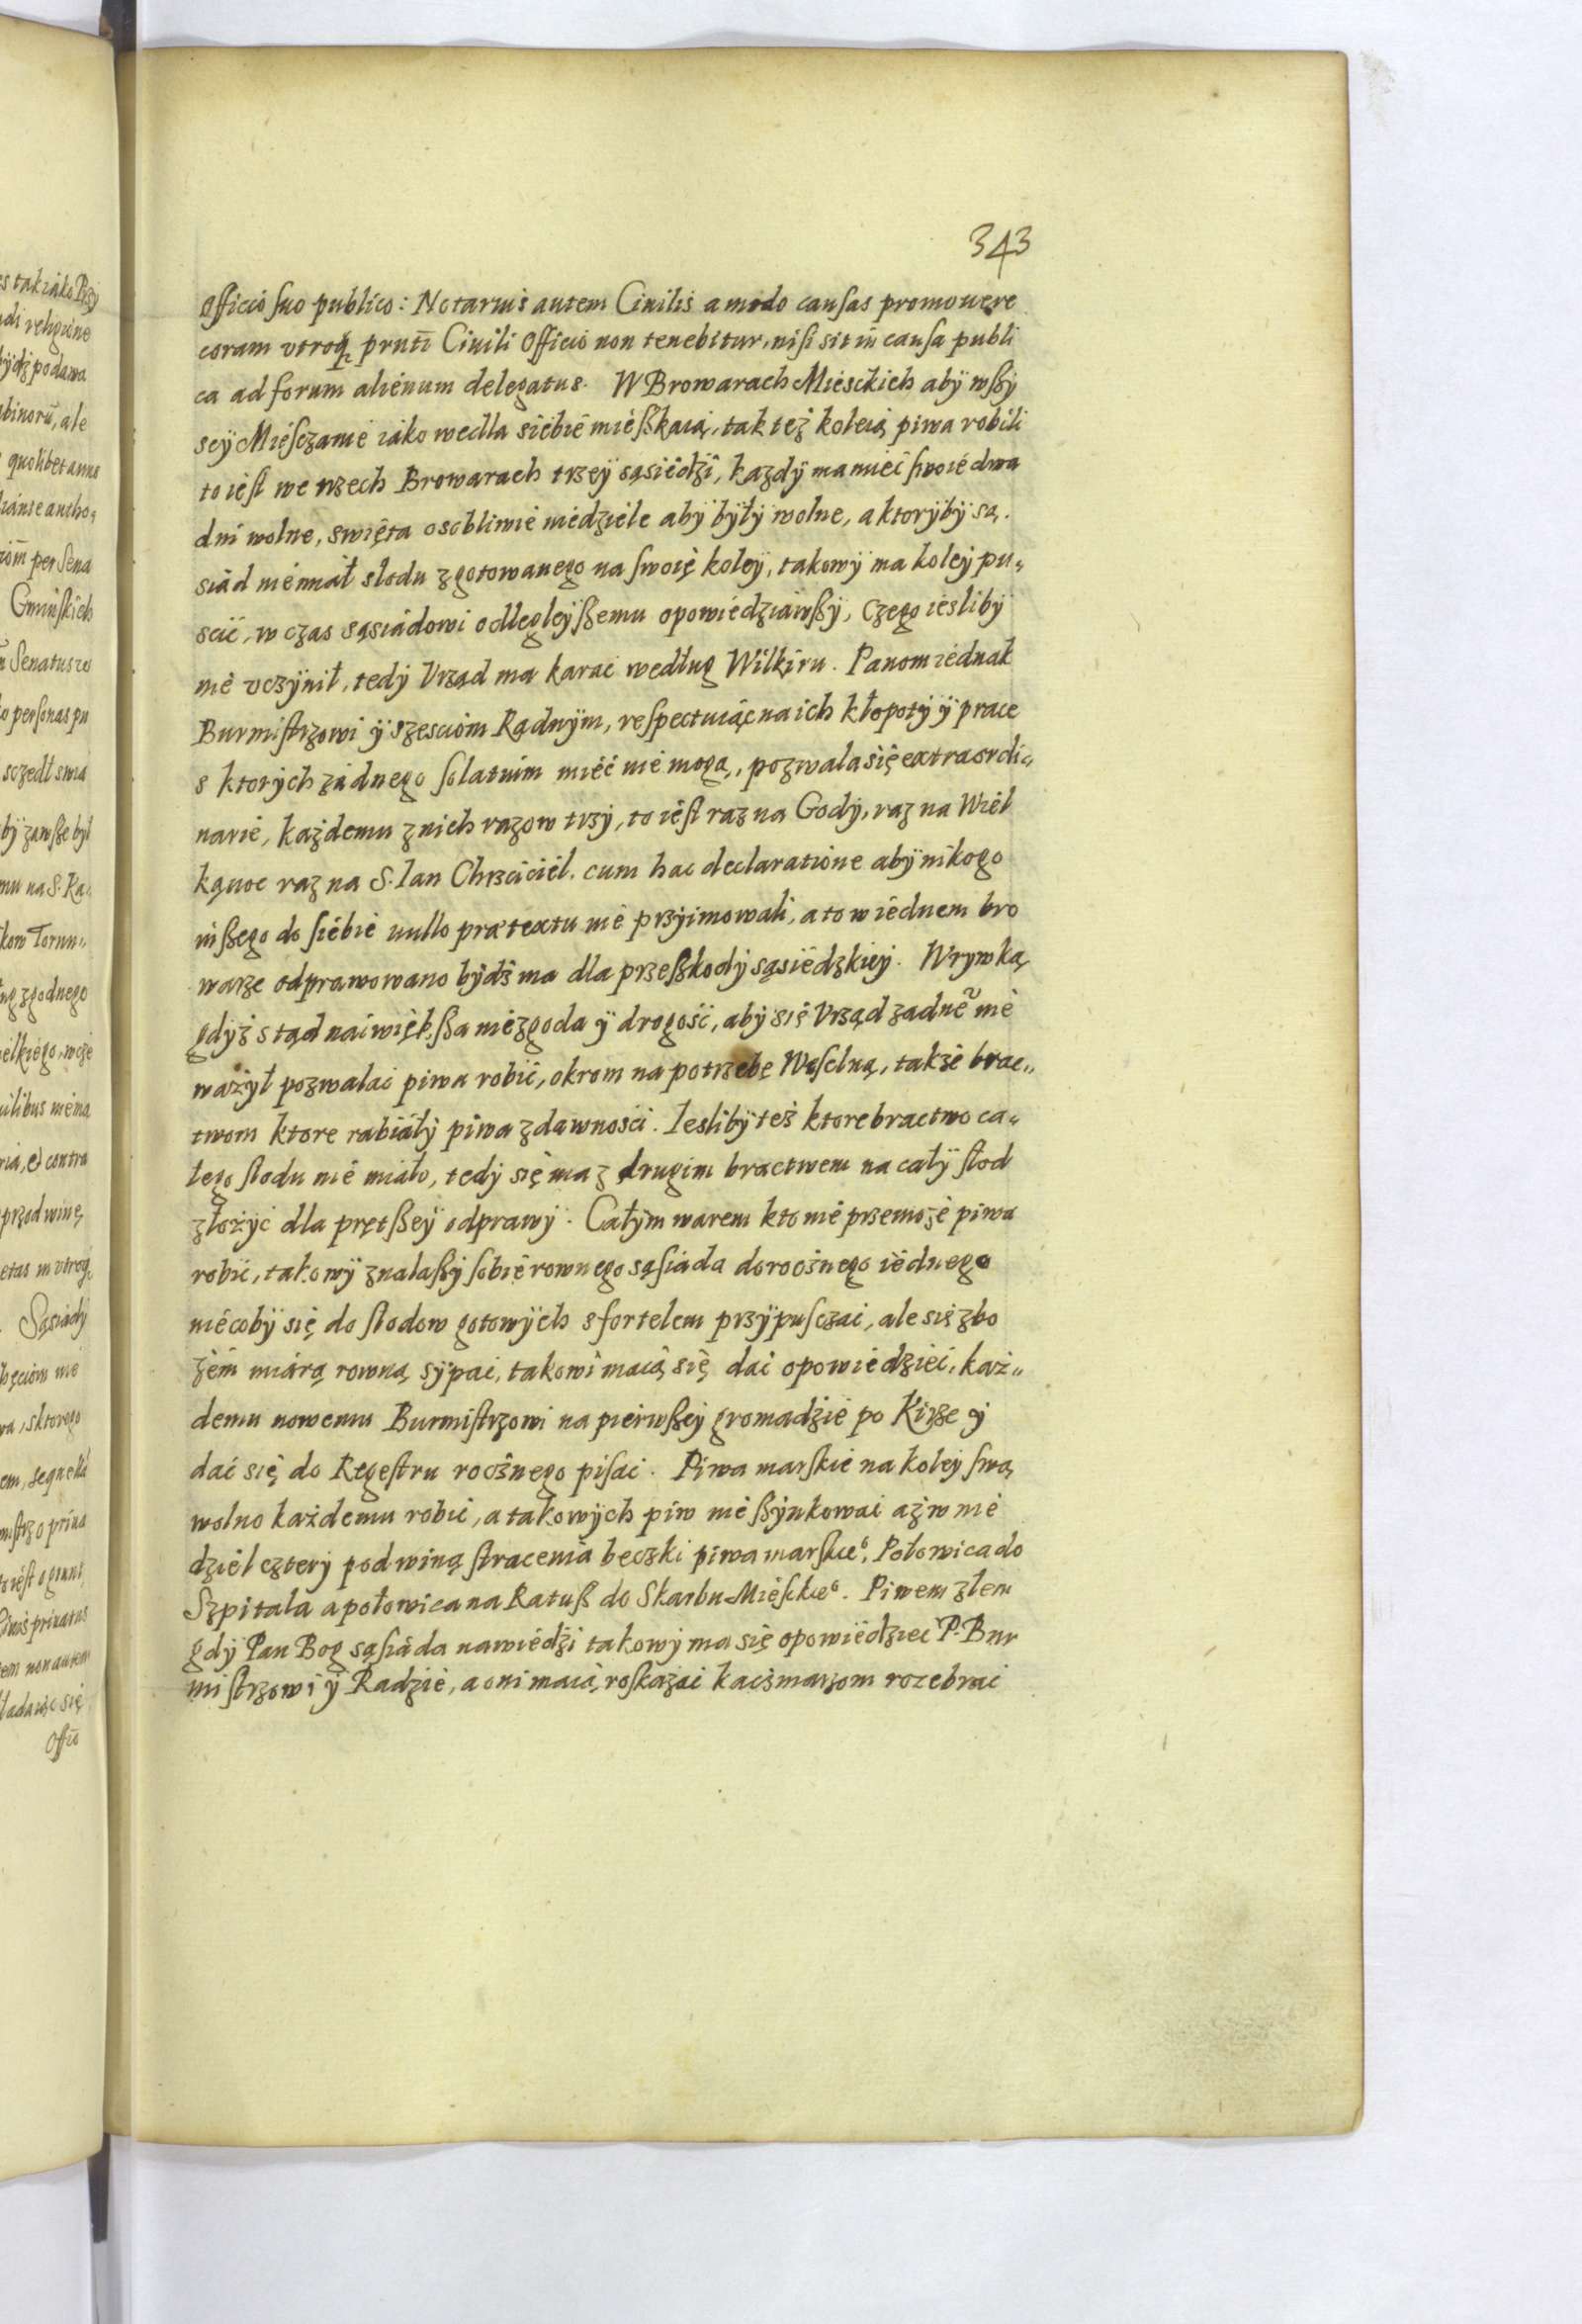 343
es tak iako Przy
adi religione
bydz podawa
abinorū, ale
quolibet anno
per Sena
Gminskich
Senatus
personas pu
sczedł swia
by zawsze był
mu na S. Ka
kow Torun„
zgodnego
ielkiego, wcze
ria, et contra
przod winę
etas in vtroq
Sąsiady
hęciom nie
wa, sktorego
em, seqnela
mistrzo priua
to iest ogunni
Ciuis priuatus
em non autem
Offic
Officio suo publico: Notarius autem Ciuilis amodo causas promouere
coram vtroq prnti Ciuili Officio non tenebitur, nisi sit in causa publi
ca ad forum alienum delegatus. W Browarach Miesckich aby wszy
scy Miesczanie iako wedla siebie mieszkaią, tak też koleią piwa robili
to iest we trzech Browarach trzey sąsiedzi, kazdy ma mieć swoie dwa
dni wolne, swięta osobliwie niedziele aby były wolne, a ktoryby są.
siad niemiał słodu zgotowanego na swoię koley, takowy ma koley pu„
scić, w czas sąsiadowi odlegleyszemu opowiedziawszy, Czego iesliby
nie vczynił, tedy Vrząd ma karać według Wilkiru. Panom iednak
Burmistrzowi y szesciom Radnym, respectuiąc na ich kłopoty y prace
s ktorych żadnego solatium mieć nie mogą, pozwala się extraordi„
narie, każdemu z nich razow trzy, to iest raz na Gody, raz na Wiel
kąnoc raz na S. Ian Chrzciciel. cum hac declaratione aby nikogo
inszego do siebie nullo prætextu nie przyimowali, a to w iednem bro
warze odprawowano bydź ma dla przeszkody sąsiedzkiey. Wrywką
gdyż stąd naiwiększa niezgoda y drogość, aby się Vrząd żadnē nie
ważył pozwalać piwa robić, okrom na potrzebę Weselną, także brac„
twom ktore rabiały piwa zdawności. Iesliby też ktore bractwo ca„
łego słodu nie miało, tedy się ma z drugim bractwem na cały słod
złożyć dla prętszey odprawy. Całym warem kto nie przemoże piwa
robić, takowy znalaszy sobie rownego sąsiada dorocznego iednego
niecoby się do słodow gotowych s fortelem przypusczać, ale się zbo
żem miarą rowną sypać, takowi maią się dać opowiedzieć, każ„
demu nowemu Burmistrzowi na pierwszey gromadzie po Kirze y
dać się do Regestru rocznego pisać. Piwa marskie na koley swą
wolno każdemu robić, a takowych piw nie szynkować aż w nie
dziel cztery pod winą stracenia beczki piwa marskieᵒ, Połowica do
Szpitala a połowica na Ratusz do Skarbu Miesckieᵒ. Piwem złem
gdy Pan Bog sąsiada nawiedzi takowy ma się opowiedzieć P. Bur
mistrzowi y Radzie, a oni maią roskazać kaczmarzom rozebrać